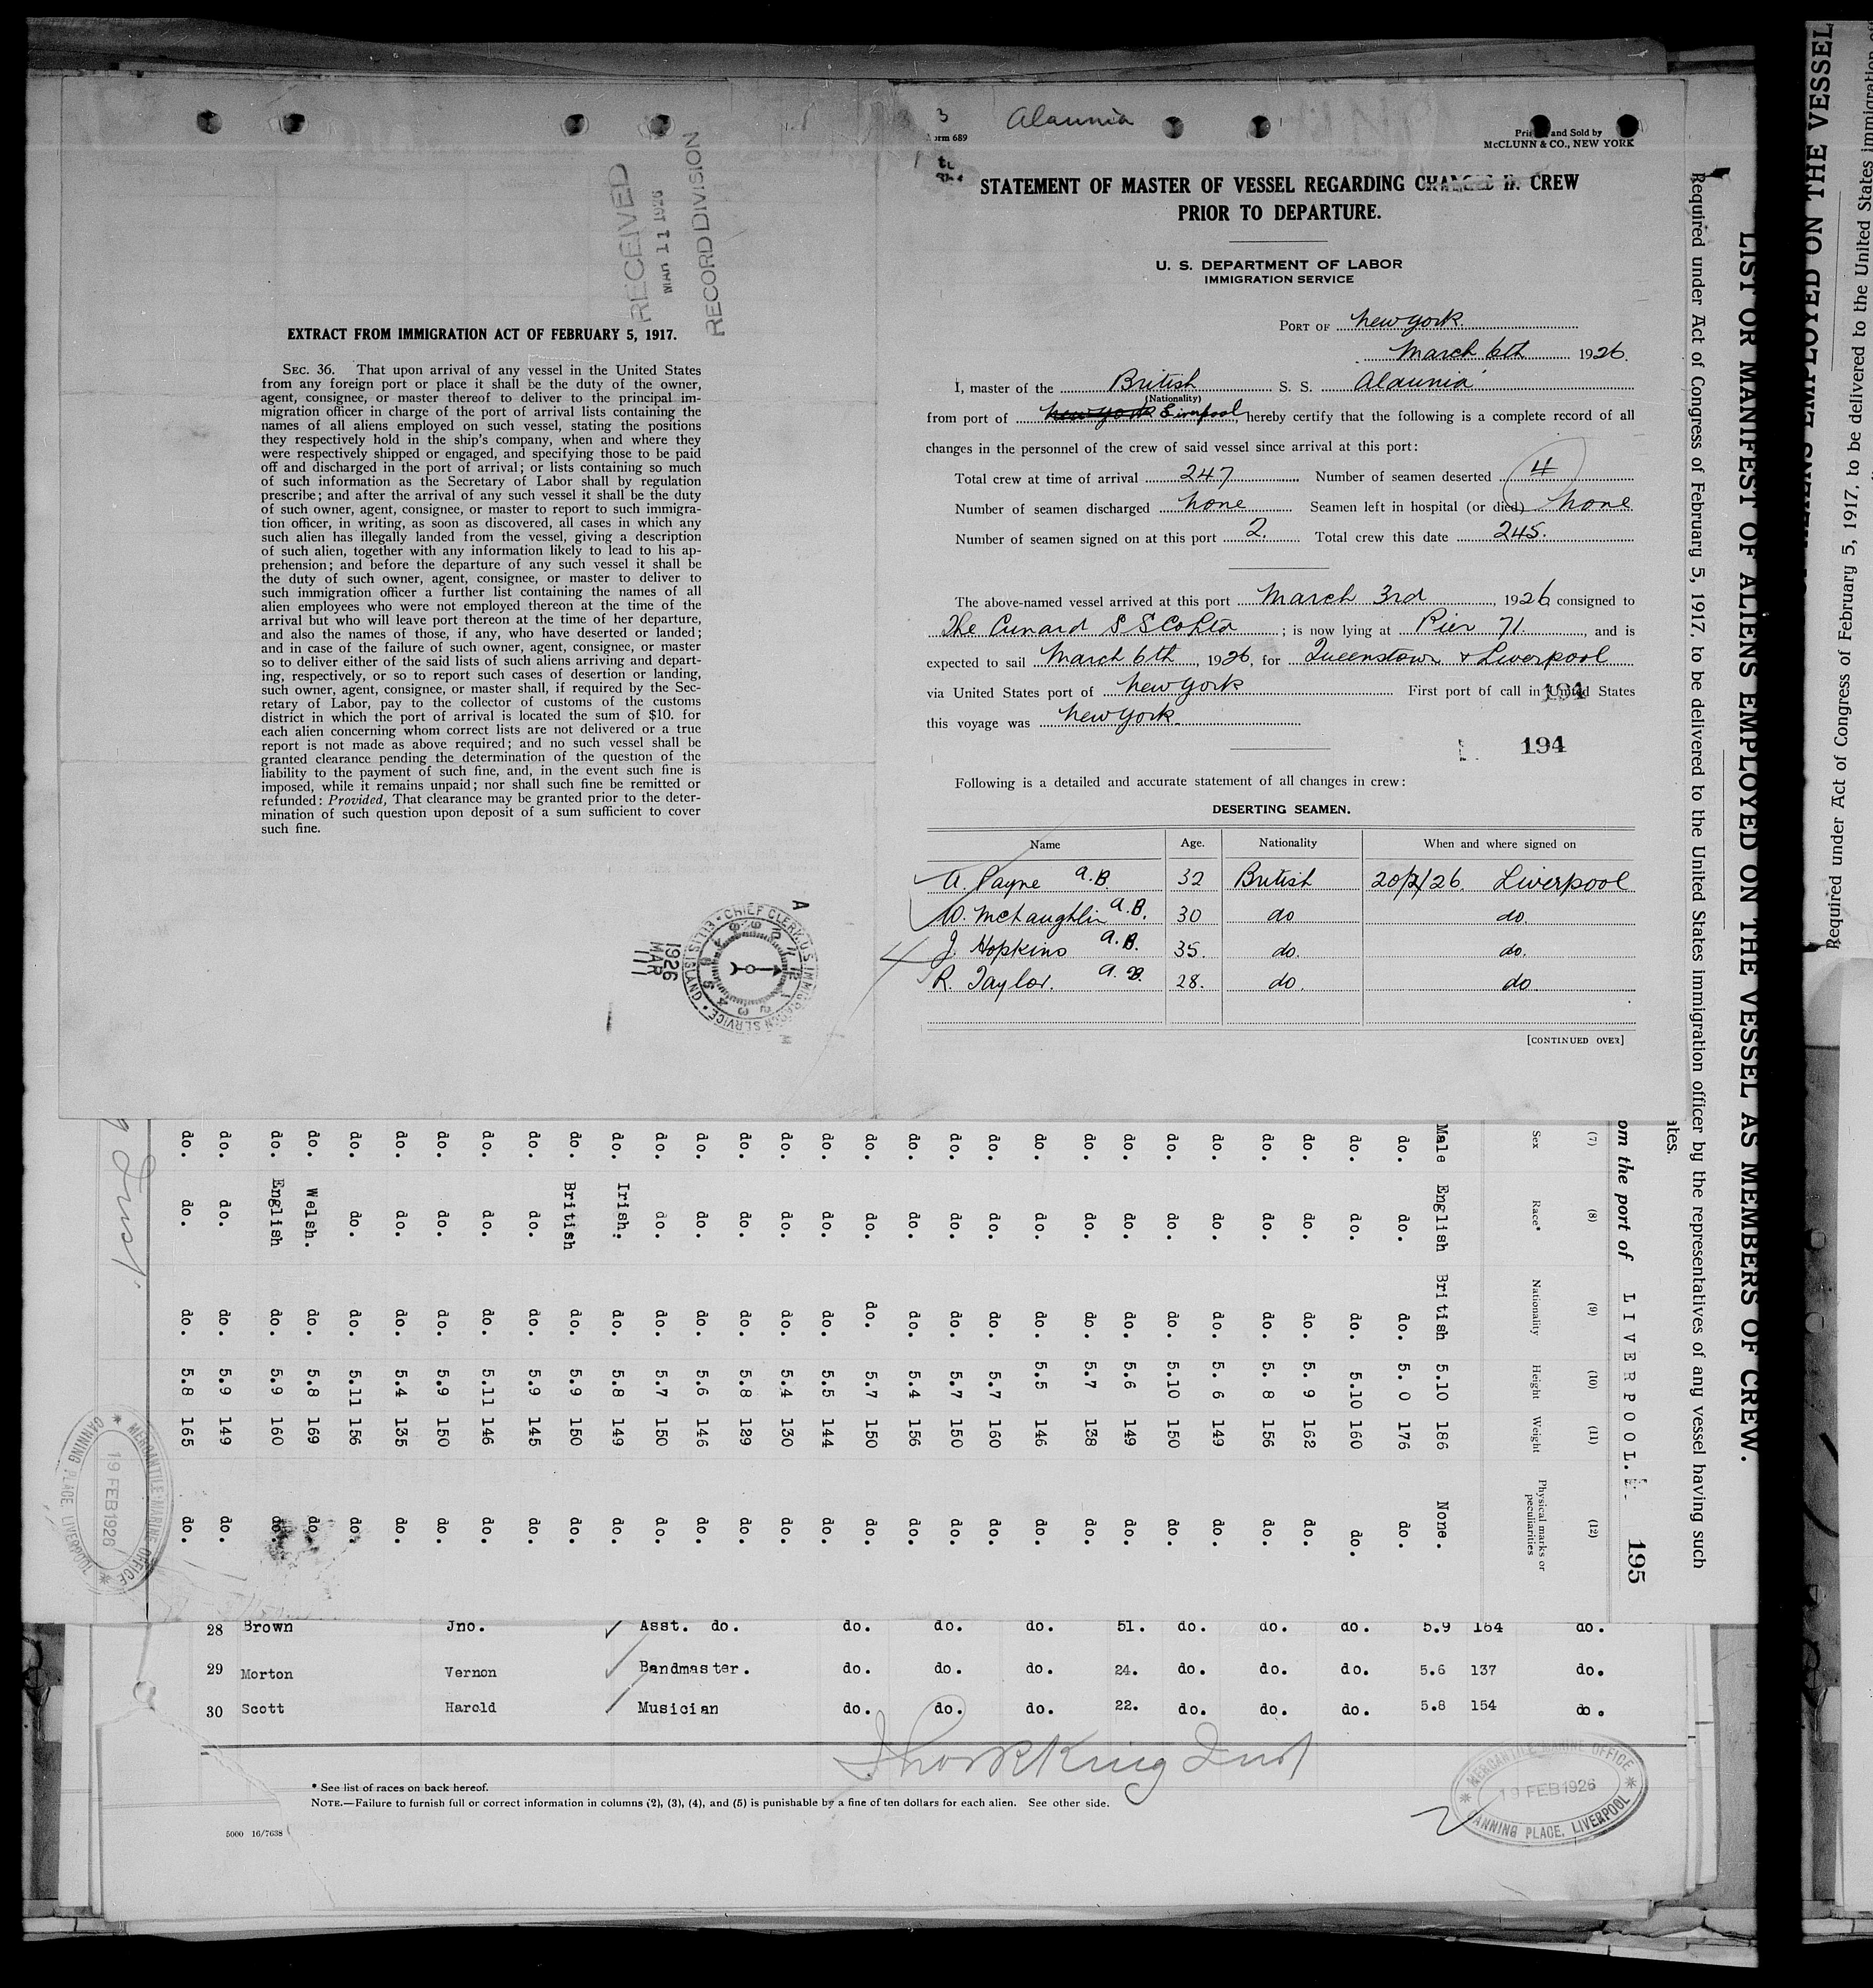 RECEIVED
MAR 11 1926
RECORD DIVISION
EXTRACT FROM IMMIGRATION ACT OF FEBRUARY 5, 1917.
SEC. 36. That upon arrival of any vessel in the United States
from any foreign port or place it shall be the duty of the owner,
agent, consignee, or master thereof to deliver to the principal im-
migration officer in charge of the port of arrival lists containing the
names of all aliens employed on such vessel, stating the positions
they respectively hold in the ship's company, when and where they
were respectively shipped or engaged, and specifying those to be paid
off and discharged in the port of arrival; or lists containing so much
of such information as the Secretary of Labor shall by regulation
prescribe; and after the arrival of any such vessel it shall be the duty
of such owner, agent, consignee, or master to report to such immigra-
tion officer, in writing, as soon as discovered, all cases in which any
such alien has illegally landed from the vessel, giving a description
of such alien, together with any information likely to lead to his ap-
prehension; and before the departure of any such vessel it shall be
the duty of such owner, agent, consignee, or master to deliver to
such immigration officer a further list containing the names of all
alien employees who were not employed thereon at the time of the
arrival but who will leave port thereon at the time of her departure,
and also the names of those, if any, who have deserted or landed;
and in case of the failure of such owner, agent, consignee, or master
so to deliver either of the said lists of such aliens arriving and depart-
ing, respectively, or so to report such cases of desertion or landing,
such owner, agent, consignee, or master shall, if required by the Sec-
retary of Labor, pay to the collector of customs of the customs
district in which the port of arrival is located the sum of $10. for
each alien concerning whom correct lists are not delivered or a true
report is not made as above required; and no such vessel shall be
granted clearance pending the determination of the question of the
liability to the payment of such fine, and, in the event such fine is
imposed, while it remains unpaid; nor shall such fine be remitted or
refunded: Provided, That clearance may be granted prior to the deter-
mination of such question upon deposit of a sum sufficient to cover
such fine.
CHIEF CLERK U.S. IMMIGRATION SERVICE • ELLIS ISLAND •
1926 MAR 11
3 Alaunia
orm 689
Printed and Sold by
McCLUNN & CO., NEW YORK
STATEMENT OF MASTER OF VESSEL REGARDING CHANGES IN CREW
PRIOR TO DEPARTURE.
U. S. DEPARTMENT OF LABOR
IMMIGRATION SERVICE
PORT OF New York.
March 6th 1926.
I, master of the British S. S. Alaunia
(Nationality)
from port of New York Liverpool, hereby certify that the following is a complete record of all
changes in the personnel of the crew of said vessel since arrival at this port:
Total crew at time of arrival 247 Number of seamen deserted 4
Number of seamen discharged none Seamen left in hospital (or died) none
Number of seamen signed on at this port 2. Total crew this date 245.
The above-named vessel arrived at this port March 3rd, 1926, consigned to
The Cunard S S Co Ltd; is now lying at Pier 71., and is
expected to sail March 6th, 1926, for Queenstown & Liverpool
via United States port of New York First port of call in United States
194
this voyage was New York.
194
Following is a detailed and accurate statement of all changes in crew:
DESERTING SEAMEN.
Name Age. Nationality When and where signed on
A. Payne A.B. 32 British 20/2/26. Liverpool
W. McLaughlin A.B. 30 do do.
4
J. Hopkins A.B. 35. do. do.
R. Taylor. A.B. 28. do. do
[CONTINUED OVER]
LIST OR MANIFEST OF ALIENS EMPLOYED ON THE VESSEL AS MEMBERS OF CREW.
Required under Act of Congress of February 5, 1917, to be delivered to the United States immigration officer by the representatives of any vessel having such
ates.
om the port of LIVERPOOL. 195
(7) (8) (9) (10) (11) (12)
Sex Race* Nationality Height Weight Physical marks or peculiarities
Male English British 5.10 186 None.
do. do. do. 5. 0 176 do.
do. do. do. 5.10 160 do.
do. do. do. 5. 9 162 do.
do. do. do. 5. 8 156 do.
do. do. do. 5. 6 149 do.
do. do. do. 5.10 150 do.
do. do. do. 5.6 149 do.
do. do. do. 5.7 138 do.
do. do. do. 5.5 146 do.
do. do. do. 5.7 160 do.
do. do. do. 5.7 150 do.
do. do. do. 5.4 156 do.
do. do. do. 5.7 150 do.
do. do. do. 5.5 144 do.
do. do. do. 5.4 130 do.
do. do. do. 5.8 129 do.
do. do. do. 5.6 146 do.
do. do. do. 5.7 150 do.
do. Irish. do. 5.8 149 do.
do. British do. 5.9 150 do.
do. do. do. 5.9 145 do.
do. do. do. 5.11 146 do.
do. do. do. 5.9 150 do.
do. do. do. 5.4 135 do.
do. do. do. 5.11 156 do.
do. Welsh. do. 5.8 169 do.
do. English do. 5.9 160 do.
do. do. do. 5.9 149 do.
do. do. do. 5.8 165 do.
MERCANTILE MARINE OFFICE
19 FEB 1926
CANNING PLACE, LIVERPOOL
28 Brown Jno. Asst. do. do. do. do. 51. do. do. do. 5.9 164 do.
29 Morton Vernon Bandmaster. do. do. do. 24. do. do. do. 5.6 137 do.
30 Scott Harold Musician do. do. do. 22. do. do. do. 5.8 154 do.
* See list of races on back hereof.
NOTE.—Failure to furnish full or correct information in columns (2), (3), (4), and (5) is punishable by a fine of ten dollars for each alien. See other side.
5000 16/7638
MERCANTILE MARINE OFFICE
19 FEB 1926
CANNING PLACE, LIVERPOOL
EMPLOYED ON THE VESSEL
Required under Act of Congress of February 5, 1917, to be delivered to the United States immigration